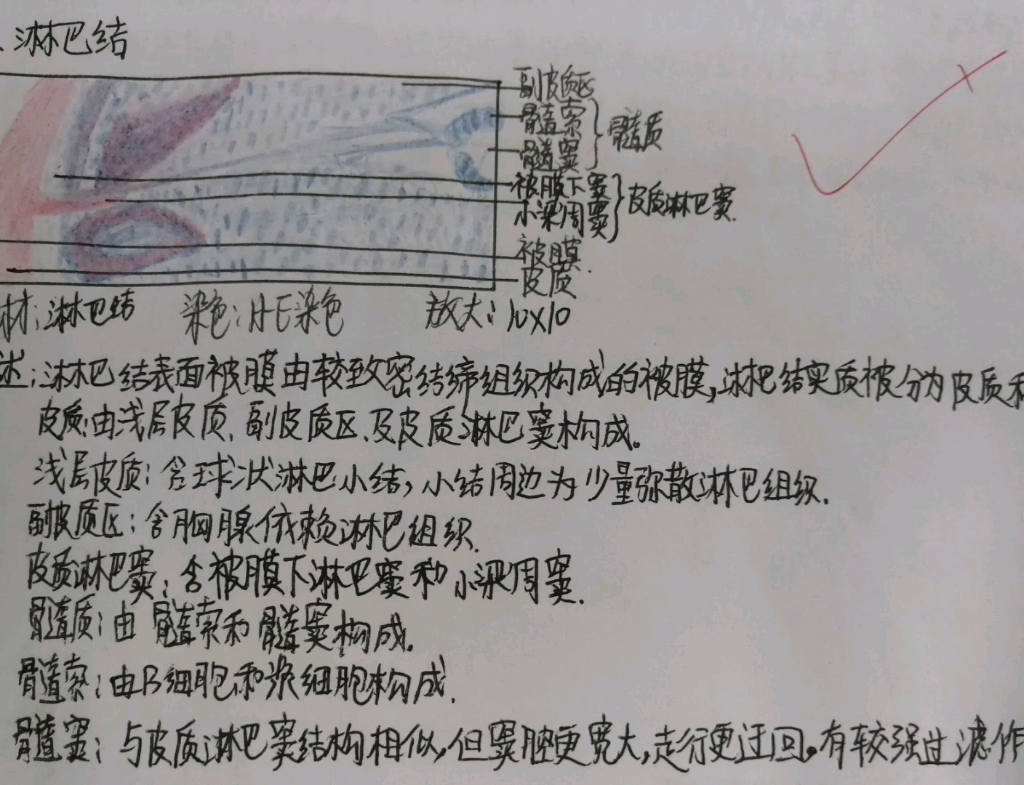 、淋巴结
副皮质区
髓索
髓窦
髓质
被膜下窦
小梁周窦
皮质淋巴窦.
被膜.
皮质
材:淋巴结 染色:H-E染色 放大:10X10
述:淋巴结表面被膜由较致密结缔组织构成的被膜,淋巴结实质被分为皮质和
皮质:由浅层皮质、副皮质区、及皮质淋巴窦构成.
浅层皮质:含球状淋巴小结,小结周边为少量弥散淋巴组织.
副皮质区:含胸腺依赖淋巴组织.
皮质淋巴窦:含被膜下淋巴窦和小梁周窦.
髓质:由髓索和髓窦构成.
髓索:由B细胞和浆细胞构成.
髓窦:与皮质淋巴窦结构相似,但窦腔更宽大,走行更迂回。有较强过滤作